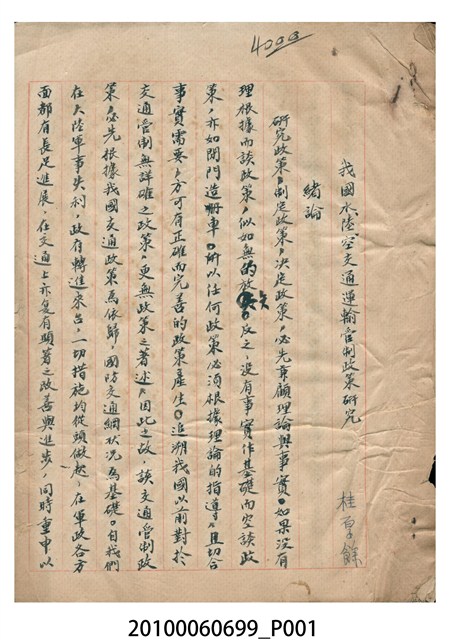 4000
我國水陸空交通運輸管制政策研究
桂厚餘
緒論
研究政策,制定政策,決定政策,必先兼顧理論與事實。如果沒有
理根據而談政策,似如無的放矢。反之,沒有事實作基礎而空談政
策,亦如閉門造車。所以任何政策必須根據理論的指導,且切合
事實需要,方可有正確而完善的政策產生。追溯我國以前對於
交通管制無詳確之政策,更無政策之著述,因此之故,談交通管制政
策,必先根據我國交通政策為依歸,國防交通網狀況為基礎。自我們
在大陸軍事失利,政府轉進來台,一切措施均從頭做起,在軍政各方
面都有長足進展,在交通上亦復有顯著之改善與進步,同時重申以
20100060699_P001